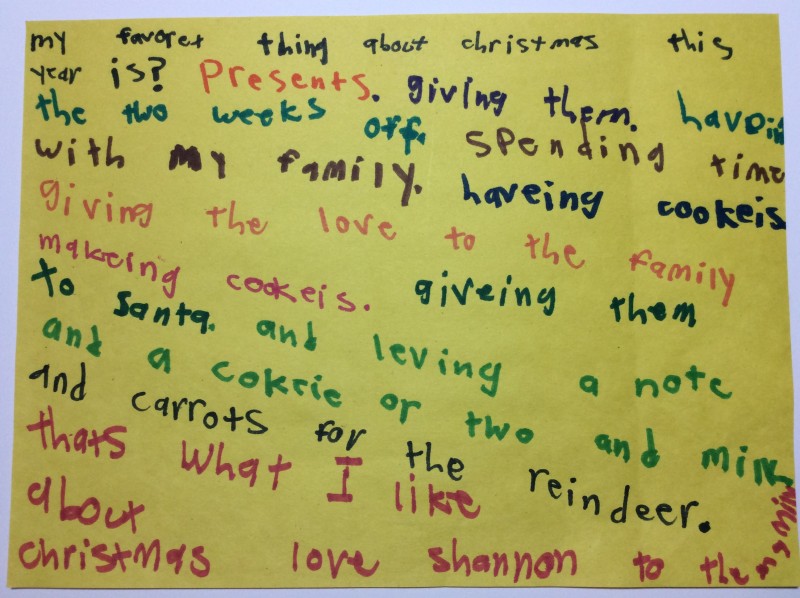 my favoret thing about christmas this
year is? Presents. giving them. haveing
the two weeks off. spending time
with my family. haveing cookeis
giving the love to the family
makeing cookeis. giveing them
to santa. and leving a note
and a cokeie or two and milk
and carrots for the reindeer.
thats what I like
about
christmas love shannon to the